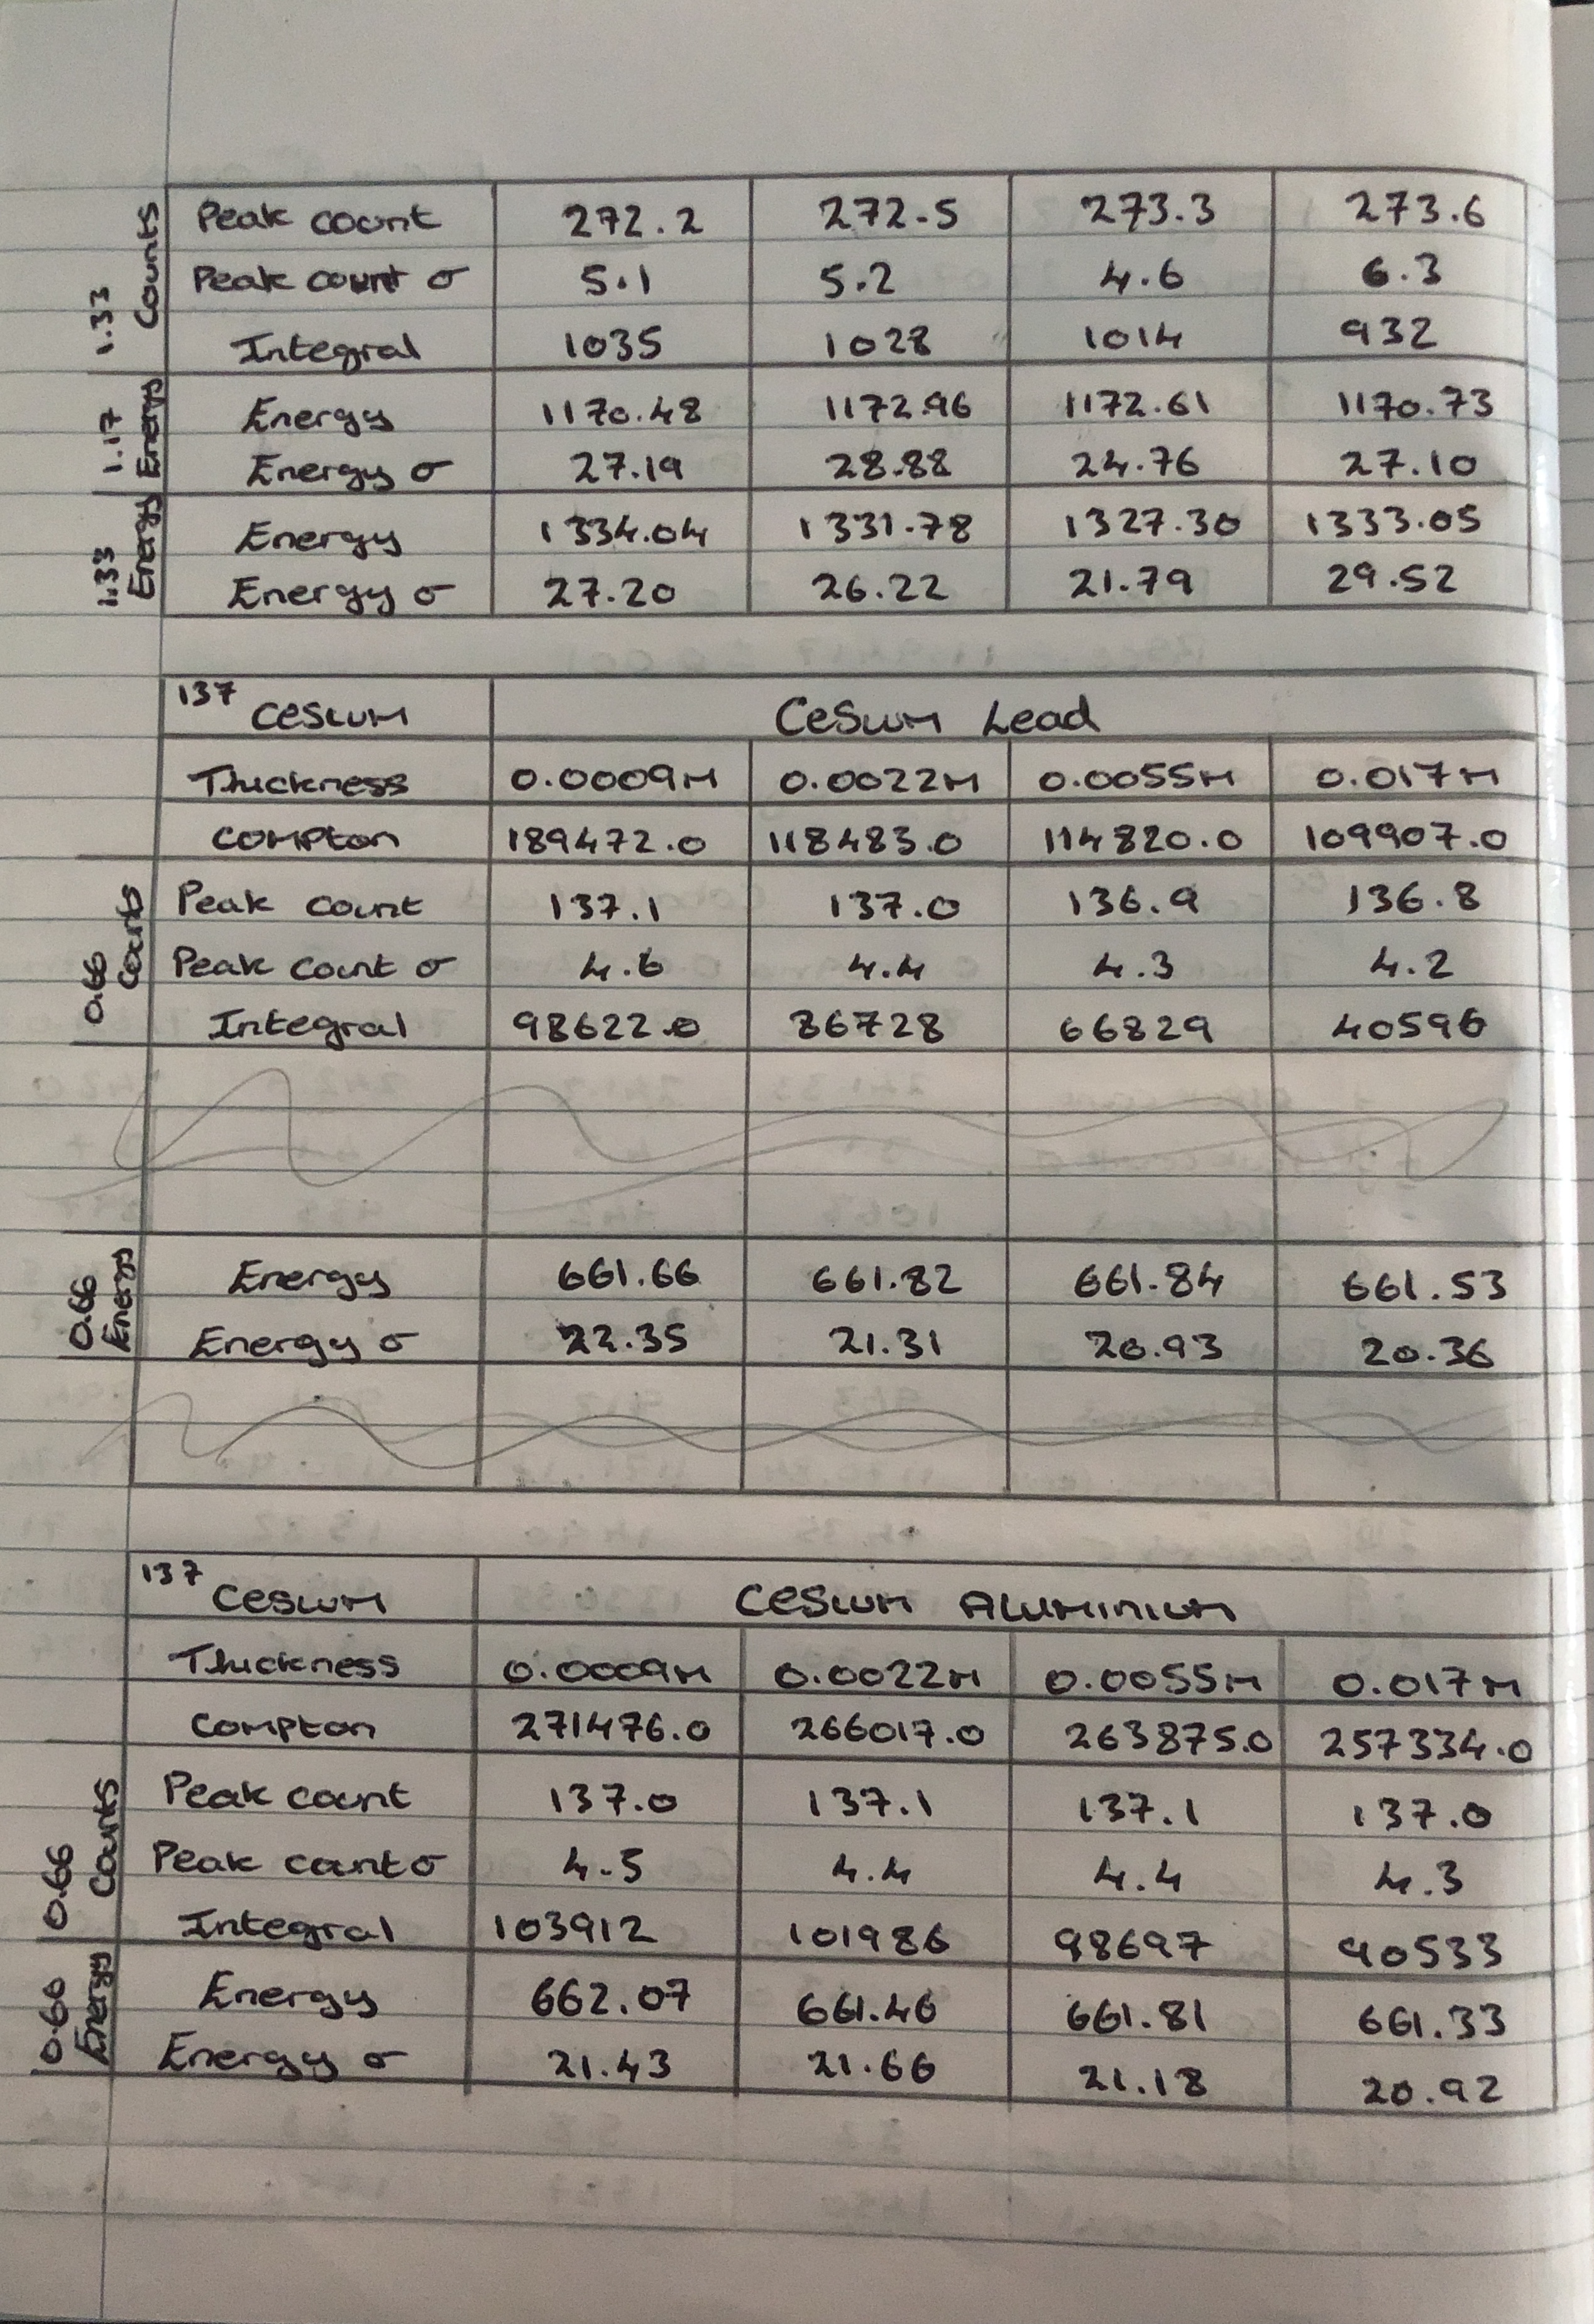 1.33 Counts
Peak count 272.2 272.5 273.3 273.6
Peak count σ 5.1 5.2 4.6 6.3
Integral 1035 1028 1014 932
1.17 Energy
Energy 1170.48 1172.96 1172.61 1170.73
Energy σ 27.19 28.88 24.76 27.10
1.33 Energy
Energy 1334.04 1331.78 1327.30 1333.05
Energy σ 27.20 26.22 21.79 29.52
137 Cesium Cesium Lead
Thickness 0.0009m 0.0022m 0.0055m 0.017m
Compton 189472.0 118483.0 114820.0 109907.0
0.66 Counts
Peak count 137.1 137.0 136.9 136.8
Peak count σ 4.6 4.4 4.3 4.2
Integral 98622.0 86728 66829 40596
0.66 Energy
Energy 661.66 661.82 661.84 661.53
Energy σ 22.35 21.31 20.93 20.36
137 Cesium Cesium Aluminium
Thickness 0.0009m 0.0022m 0.0055m 0.017m
Compton 271476.0 266017.0 263875.0 257334.0
0.66 Counts
Peak count 137.0 137.1 137.1 137.0
Peak count σ 4.5 4.4 4.4 4.3
Integral 103912 101986 98697 90533
0.66 Energy
Energy 662.07 661.46 661.81 661.33
Energy σ 21.43 21.66 21.18 20.92